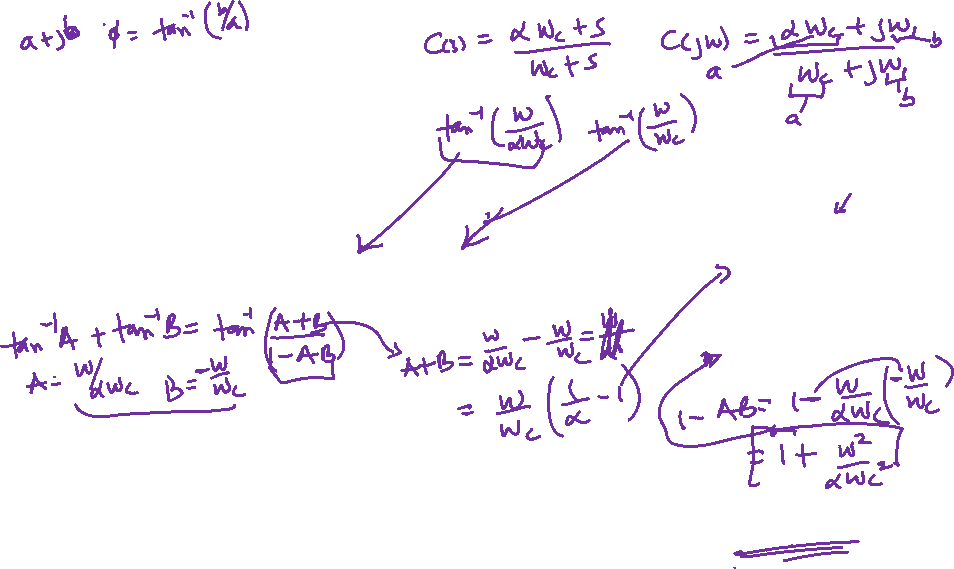 a+jb φ = tan⁻¹(b/a)
C(s) = (αWc + s)/(Wc + s)
C(jW) = (αWc + jW)/(Wc + jW)
a b
a b
tan⁻¹(W/αWc) tan⁻¹(W/Wc)
tan⁻¹A + tan⁻¹B = tan⁻¹((A+B)/(1-AB))
A = W/αWc B = -W/Wc
A+B = W/αWc - W/Wc =
= W/Wc (1/α - 1)
1 - AB = 1 - W/αWc (-W/Wc)
= 1 + W²/αWc²